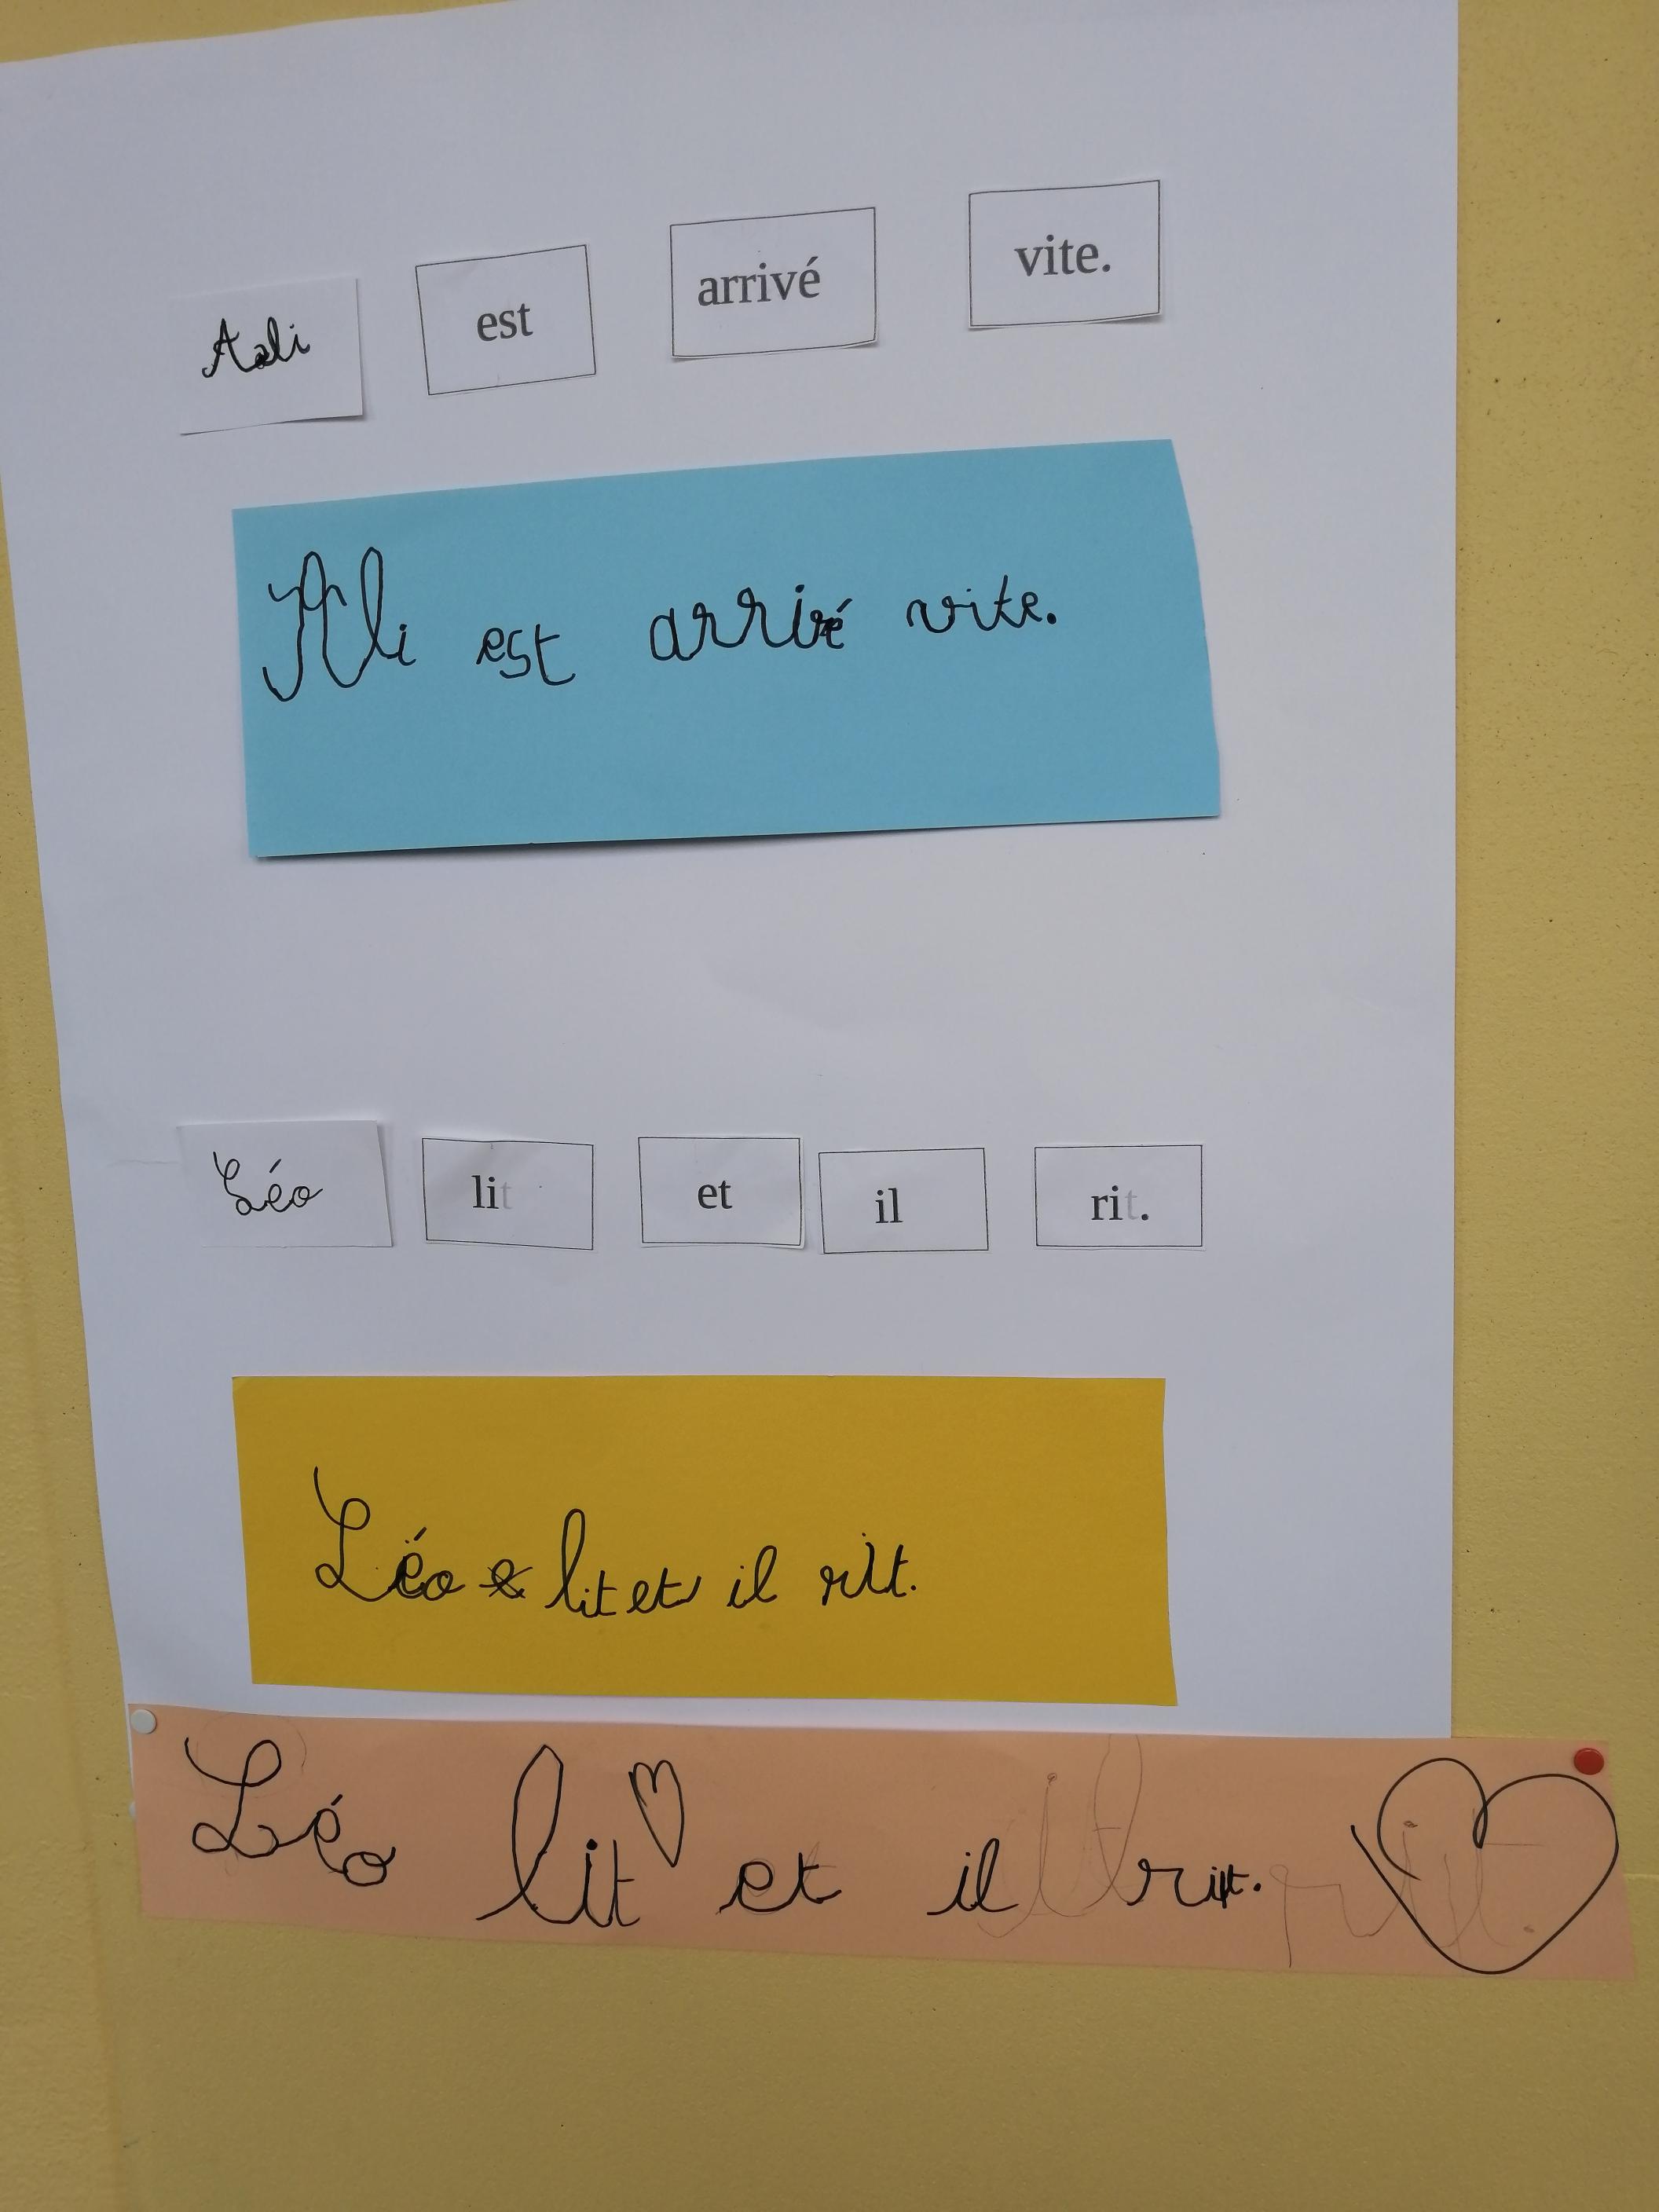 Aali est arrivé vite.
Ali est arrivé vite.
Léo lit et il rit.
Léo lit et il rit.
Léo lit et il rit.